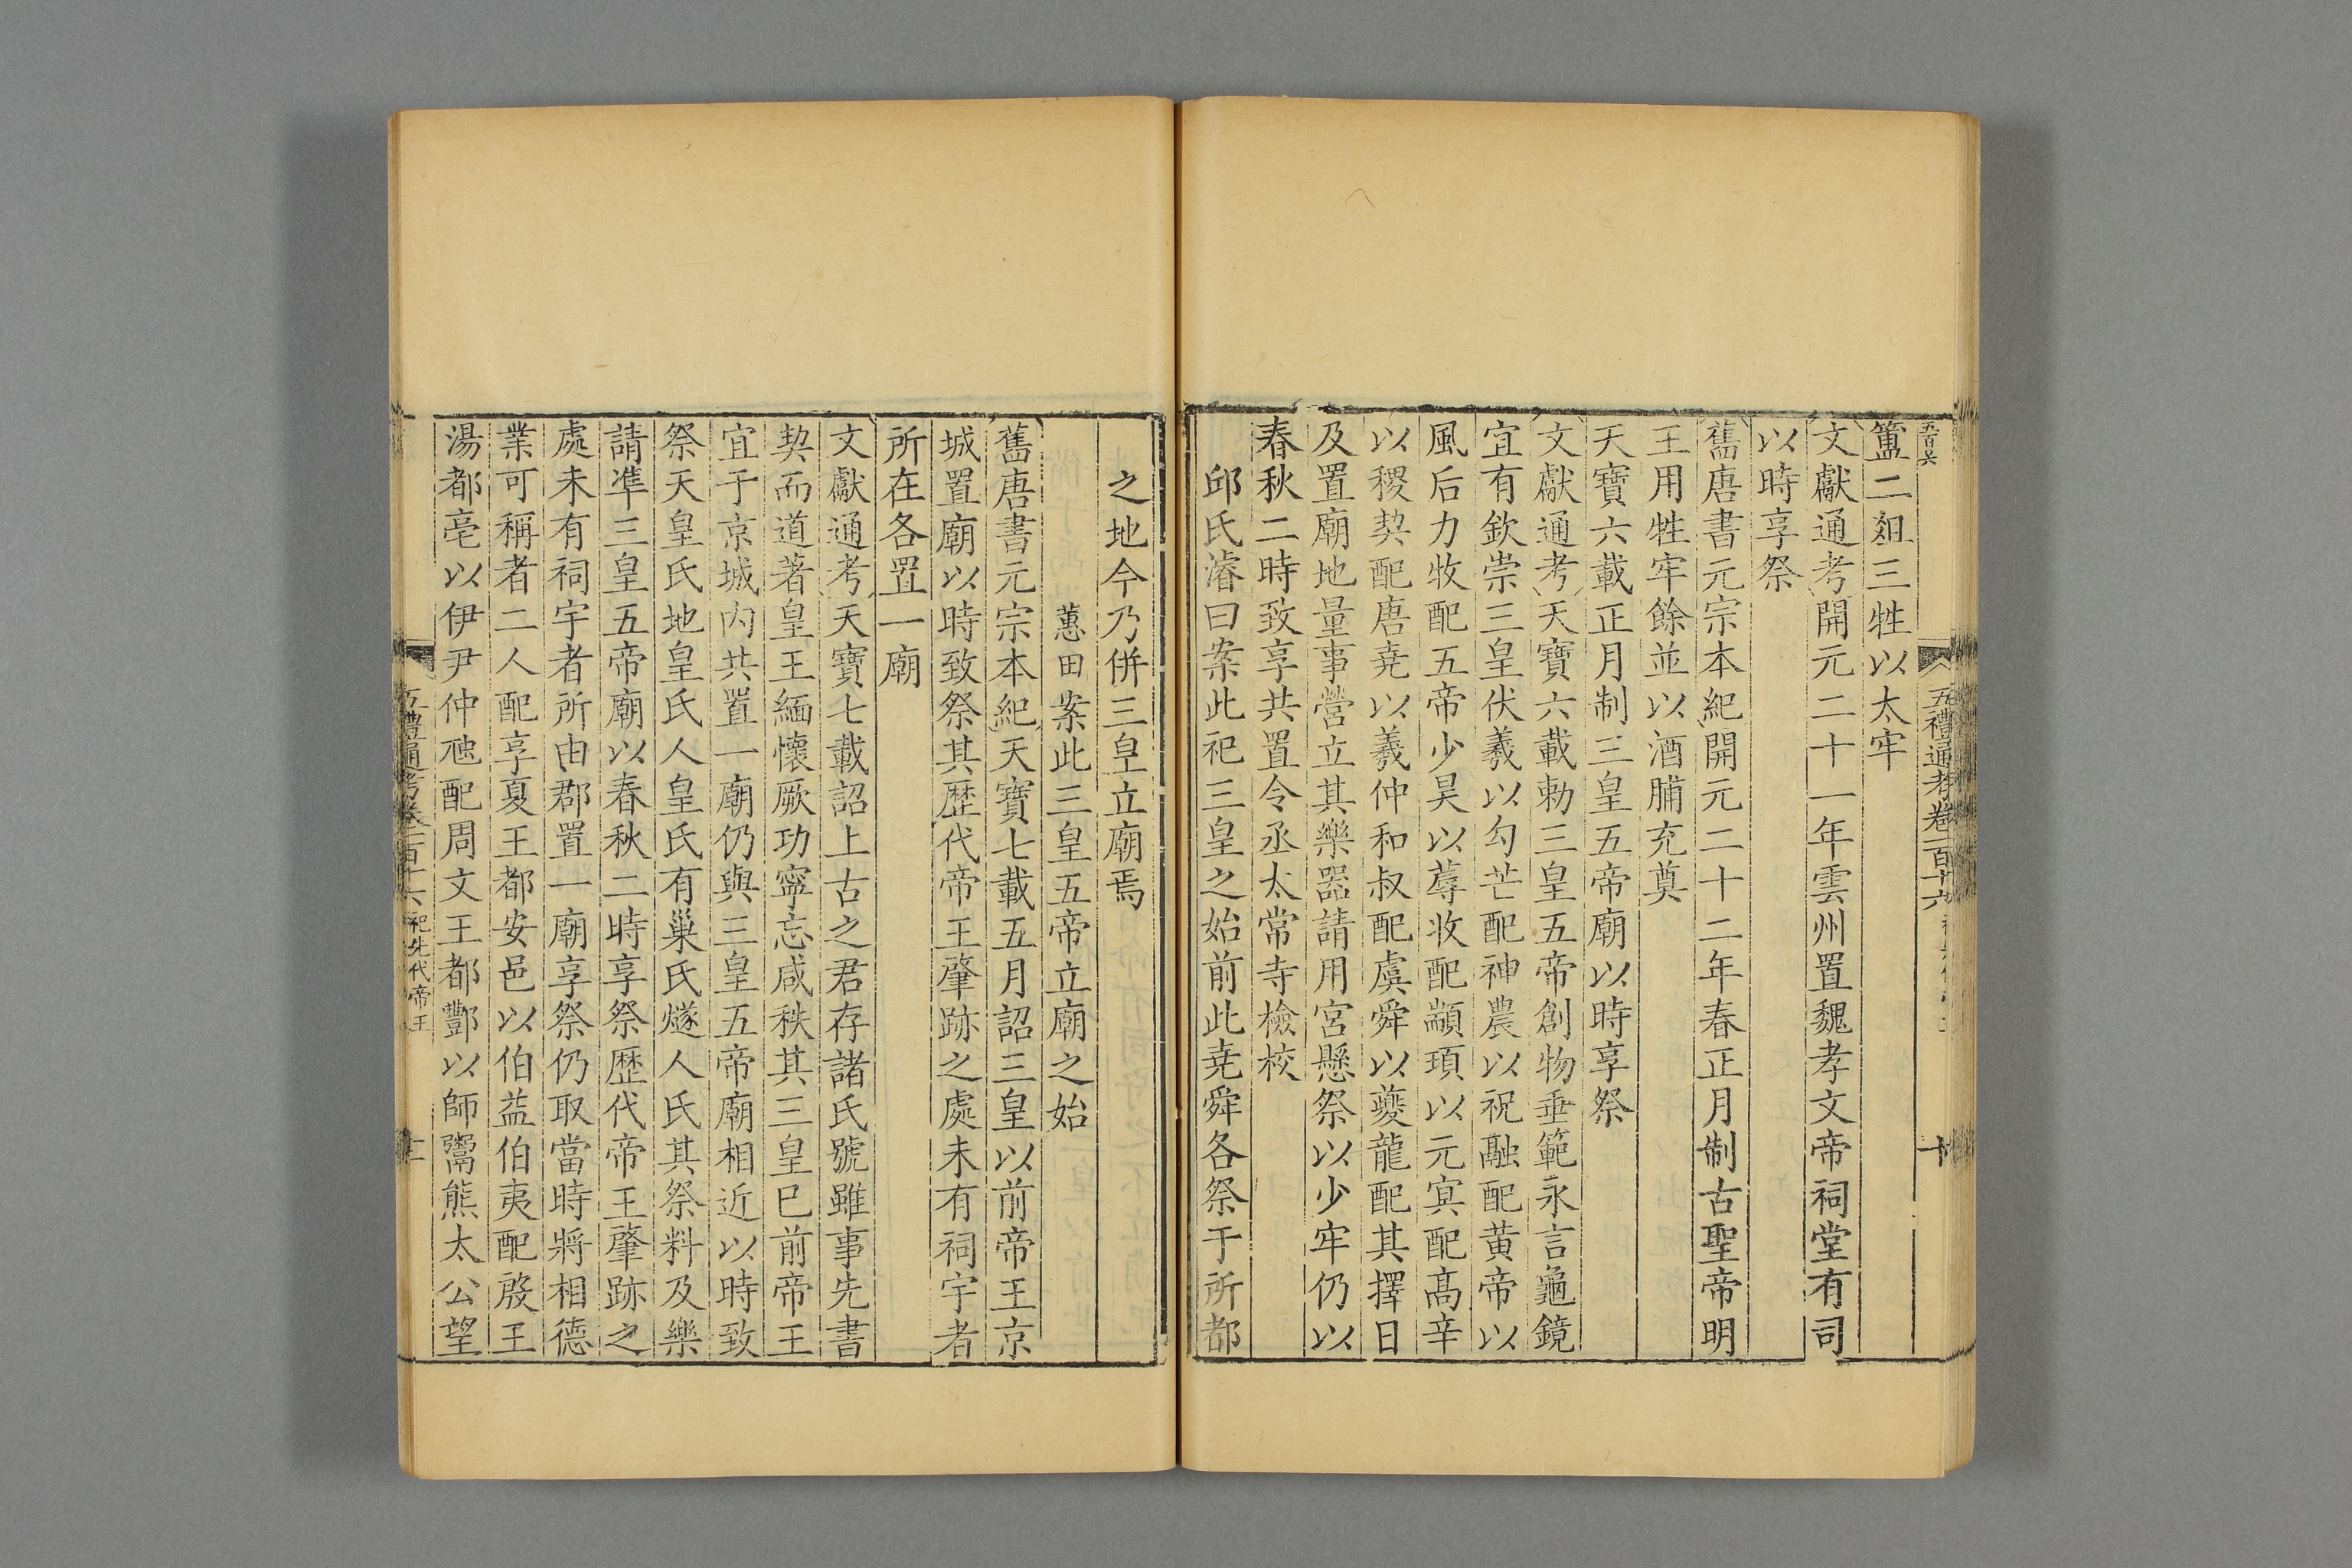 五禮通考卷一百十六
十
簠二俎三牲以太牢
文獻通考開元二十一年雲州置魏孝文帝祠堂有司
以時享祭
舊唐書元宗本紀開元二十二年春正月制古聖帝明
王用牲牢餘並以酒脯充奠
天寶六載正月制三皇五帝廟以時享祭
文獻通考天寶六載勅三皇五帝創物垂範永言龜鏡
宜有欽崇三皇伏羲以勾芒配神農以祝融配黄帝以
風后力牧配五帝少昊以蓐收配顓頊以元冥配髙辛
以稷契配唐堯以羲仲和叔配虞舜以夔龍配其擇日
及置廟地量事營立其樂器請用宮懸祭以少牢仍以
春秋二時致享共置令丞太常寺檢校
邱氏濬曰案此祀三皇之始前此堯舜各祭于所都
之地今乃併三皇立廟焉
蕙田案此三皇五帝立廟之始
舊唐書元宗本紀天寶七載五月詔三皇以前帝王京
城置廟以時致祭其歴代帝王肇跡之處未有祠宇者
所在各置一廟
文獻通考天寶七載詔上古之君存諸氏號雖事先書
契而道著皇王緬懷厥功寧忘咸秩其三皇已前帝王
宜于京城内共置一廟仍與三皇五帝廟相近以時致
祭天皇氏地皇氏人皇氏有巢氏燧人氏其祭料及樂
請準三皇五帝廟以春秋二時享祭歴代帝王肇跡之
處未有祠宇者所由郡置一廟享祭仍取當時將相德
業可稱者二人配享夏王都安邑以伯益伯夷配殷王
湯都亳以伊尹仲虺配周文王都酆以師鬻熊太公望
五禮通考卷一百十六 祀先代帝王
十一